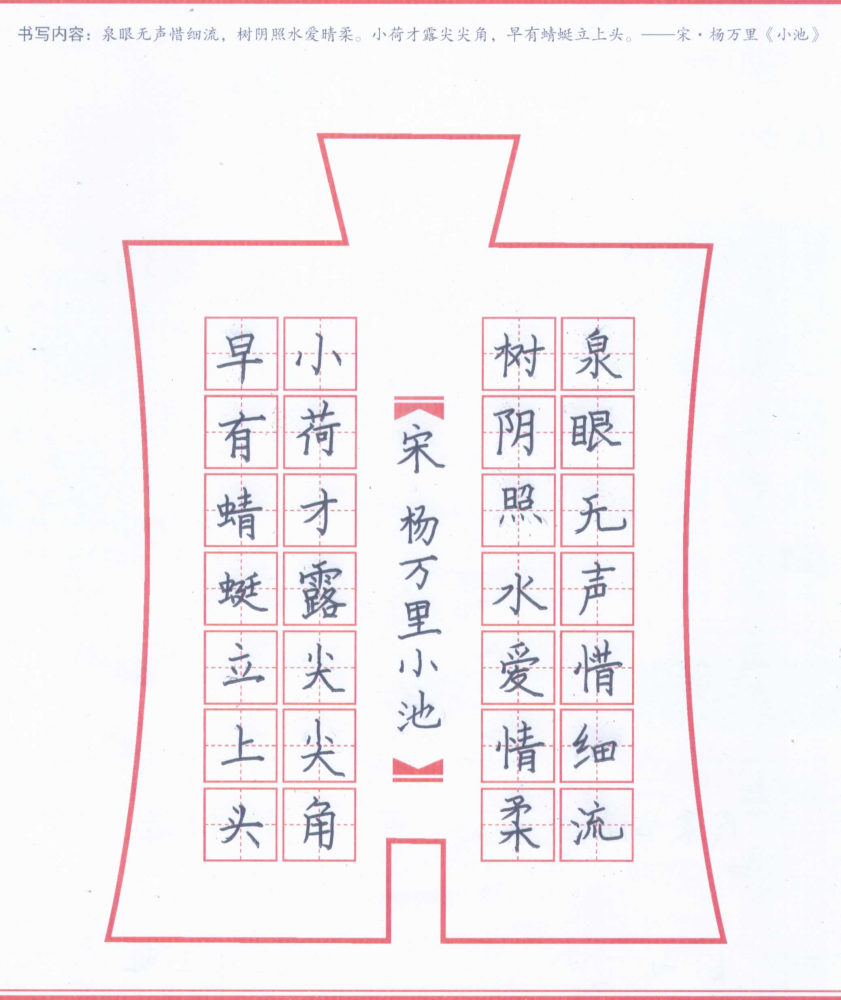 书写内容：泉眼无声惜细流，树阴照水爱晴柔。小荷才露尖尖角，早有蜻蜓立上头。——宋·杨万里《小池》
泉眼无声惜细流
树阴照水爱情柔
宋 杨万里小池
小荷才露尖尖角
早有蜻蜓立上头